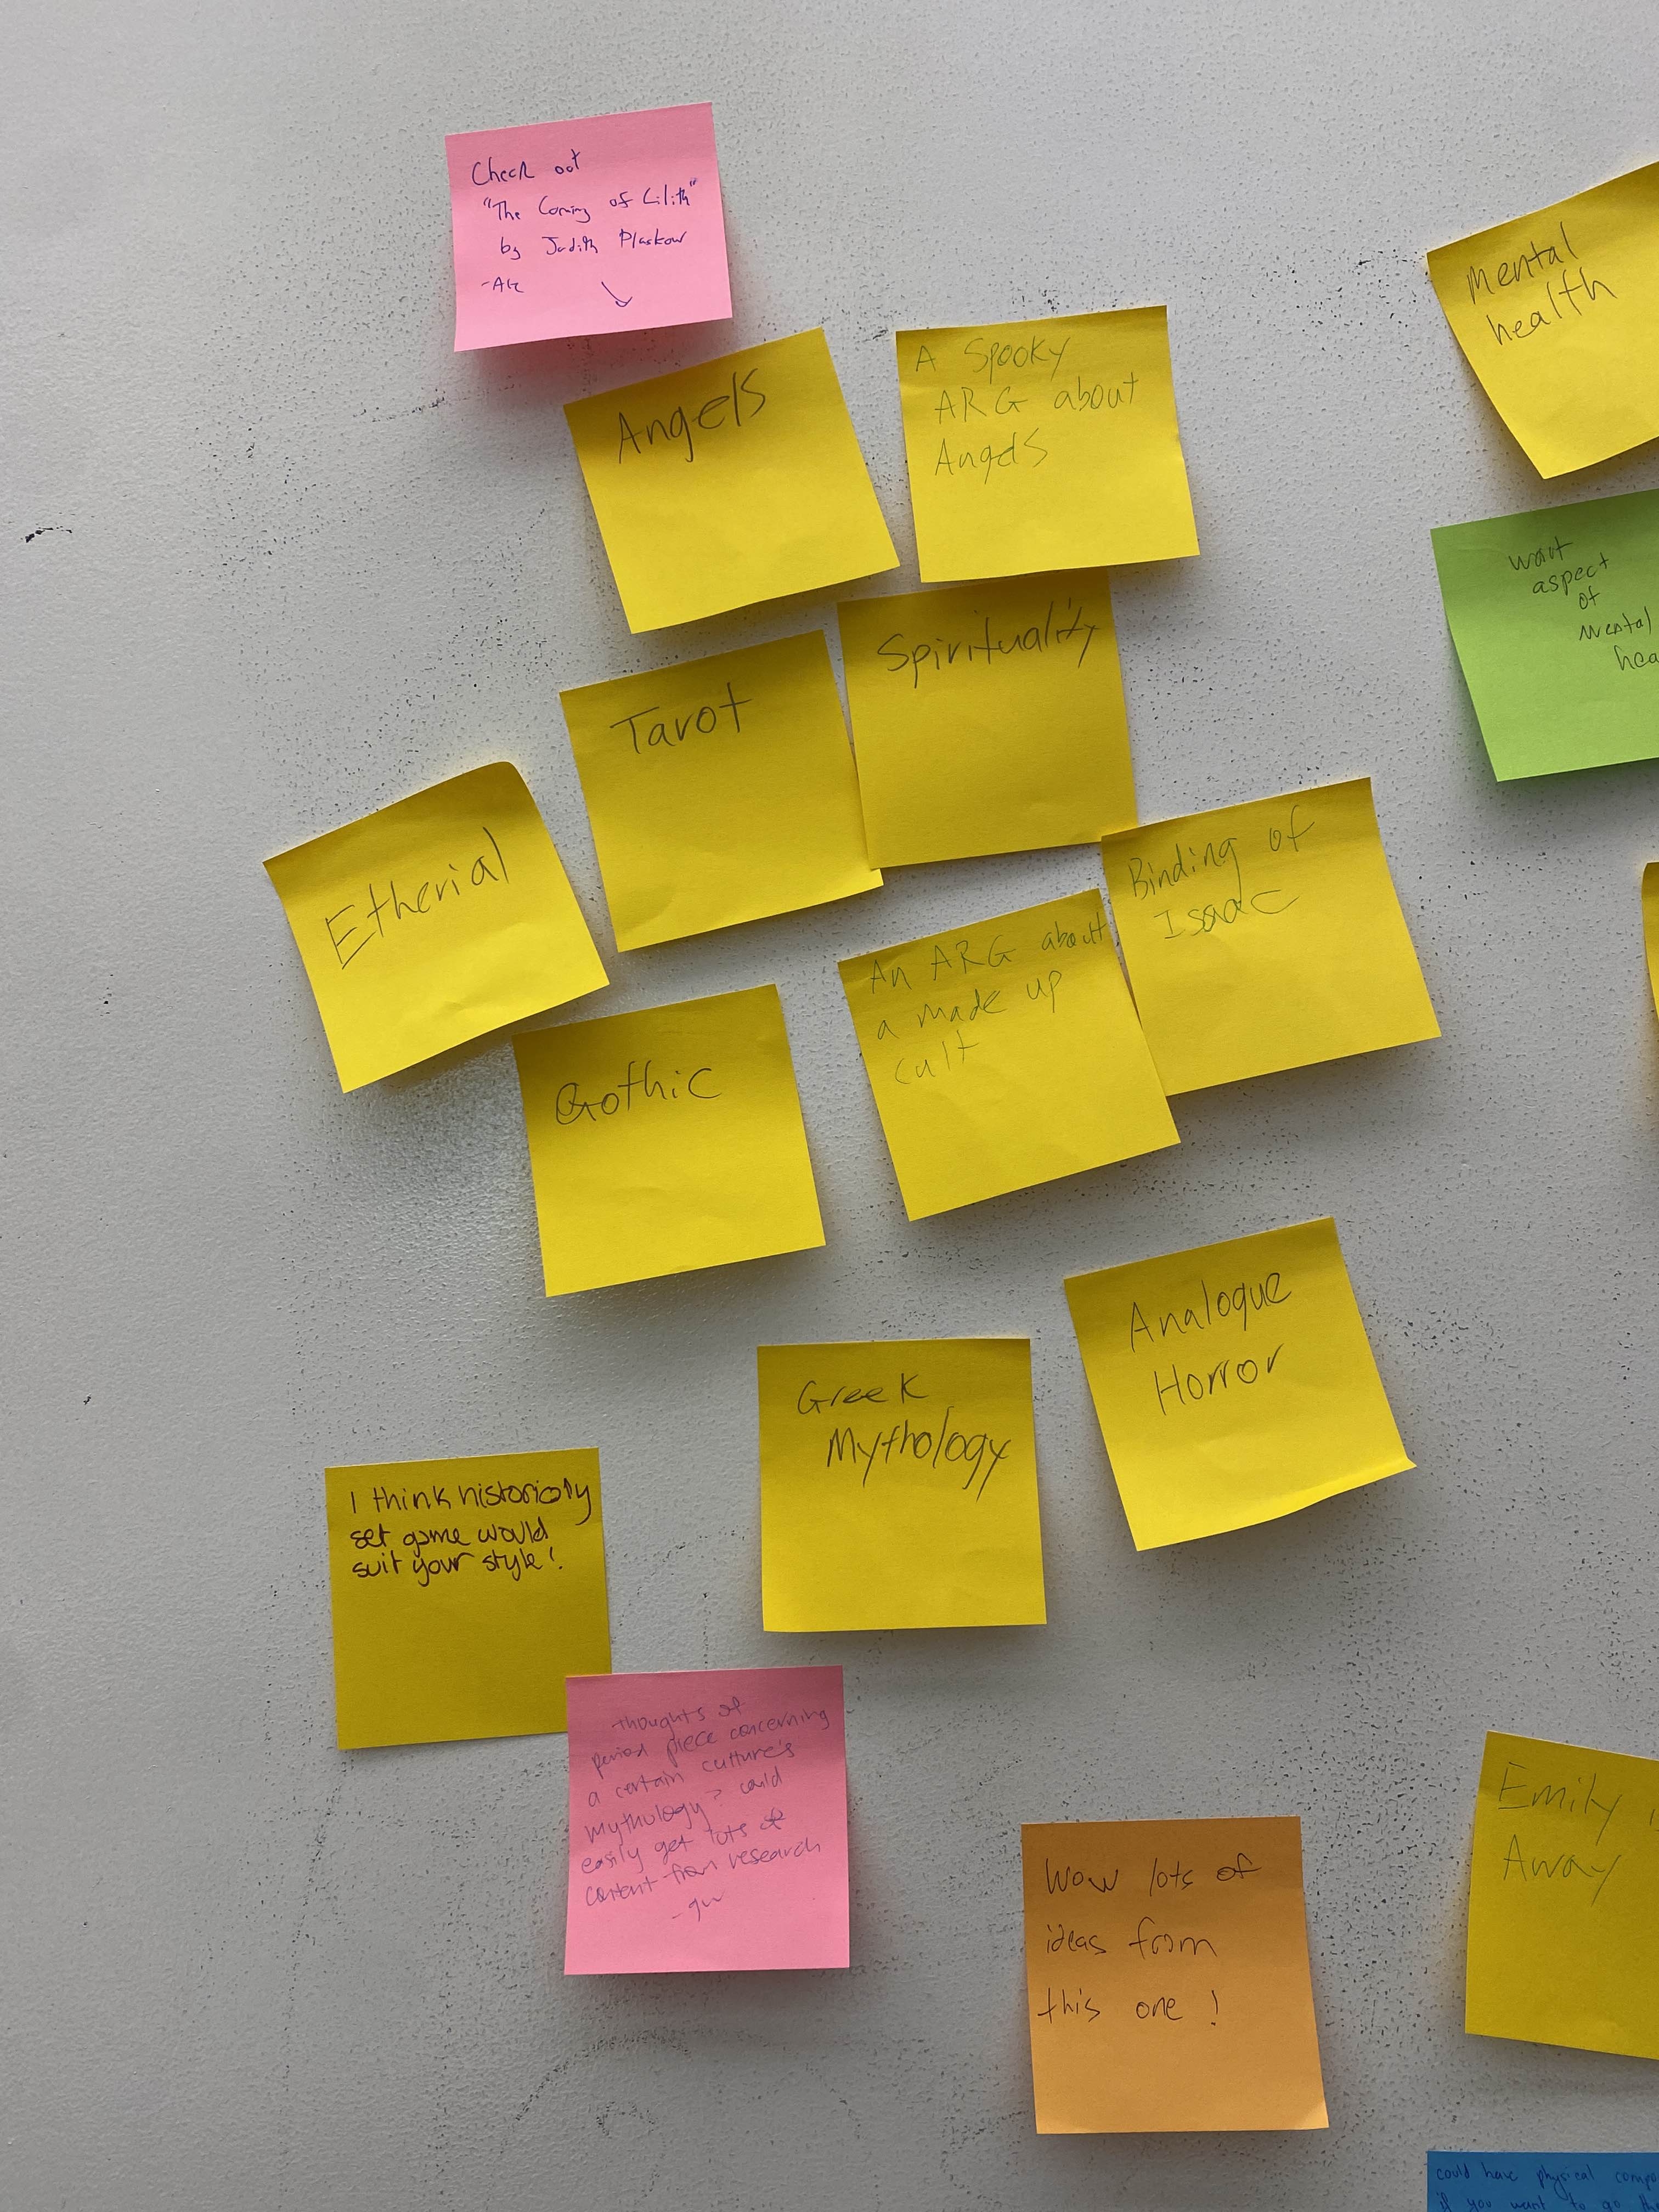 Check out
"The Coming of Lilith"
by Judith Plaskow
Angels
A Spooky
ARG about
Angels
Mental
health
want
aspect
of
mental
Tarot
Spirituality
Etherial
Binding of
Isaac
An ARG about
a made up
cult
Gothic
Analogue
Horror
Greek
Mythology
I think historicly
set game would
suit your style!
thoughts of
period piece concerning
a certain culture's
mythology? could
easily get lots of
content from research
Wow lots of
ideas from
this one !
Emily
Away
could have physical
if you want to go